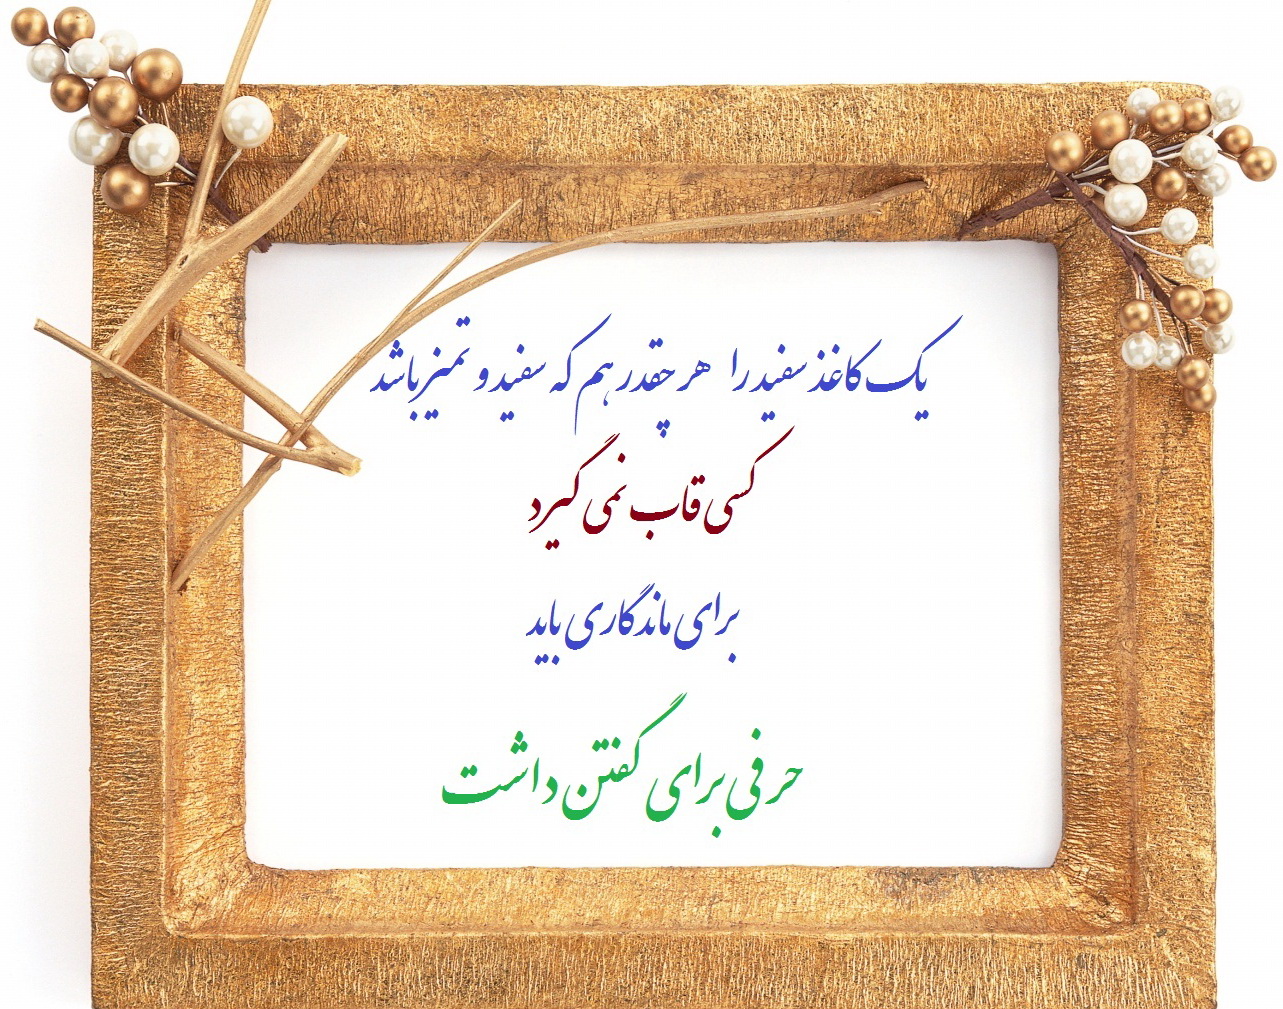 یک کاغذ سفید را هر چقدر هم که سفید و تمیز باشد
کسی قاب نمی گیرد
برای ماندگاری باید
حرفی برای گفتن داشت